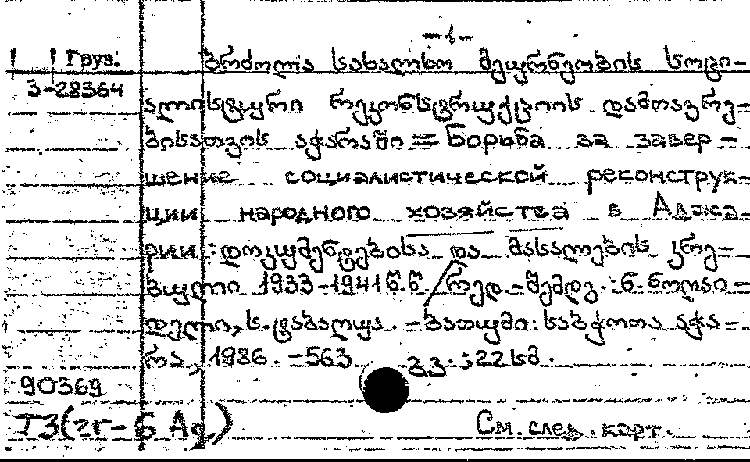 -1-
Груз. ბრძოლა სახალხო მეურნეობის სოცი-
3-28364 ალისტური რეკონსტრუქციის დამთავრე-
ბისათვის აჭარაში = Борьба за завер-
шение социалистической реконструк-
ции народного хозяйства в Аджа-
рии : დოკუმენტებისა და მასალების კრე-
ბული 1933-1941 წ.წ. / რედ.-შემდგ.: ნ. ნოღაი-
დელი, ს. ტაბაღუა. - ბათუმი: საბჭოთა აჭა-
რა, 1986. - 563 გვ. ; 22 სმ.
90369
Т3(2Г-6 Ад)
См. след. карт.